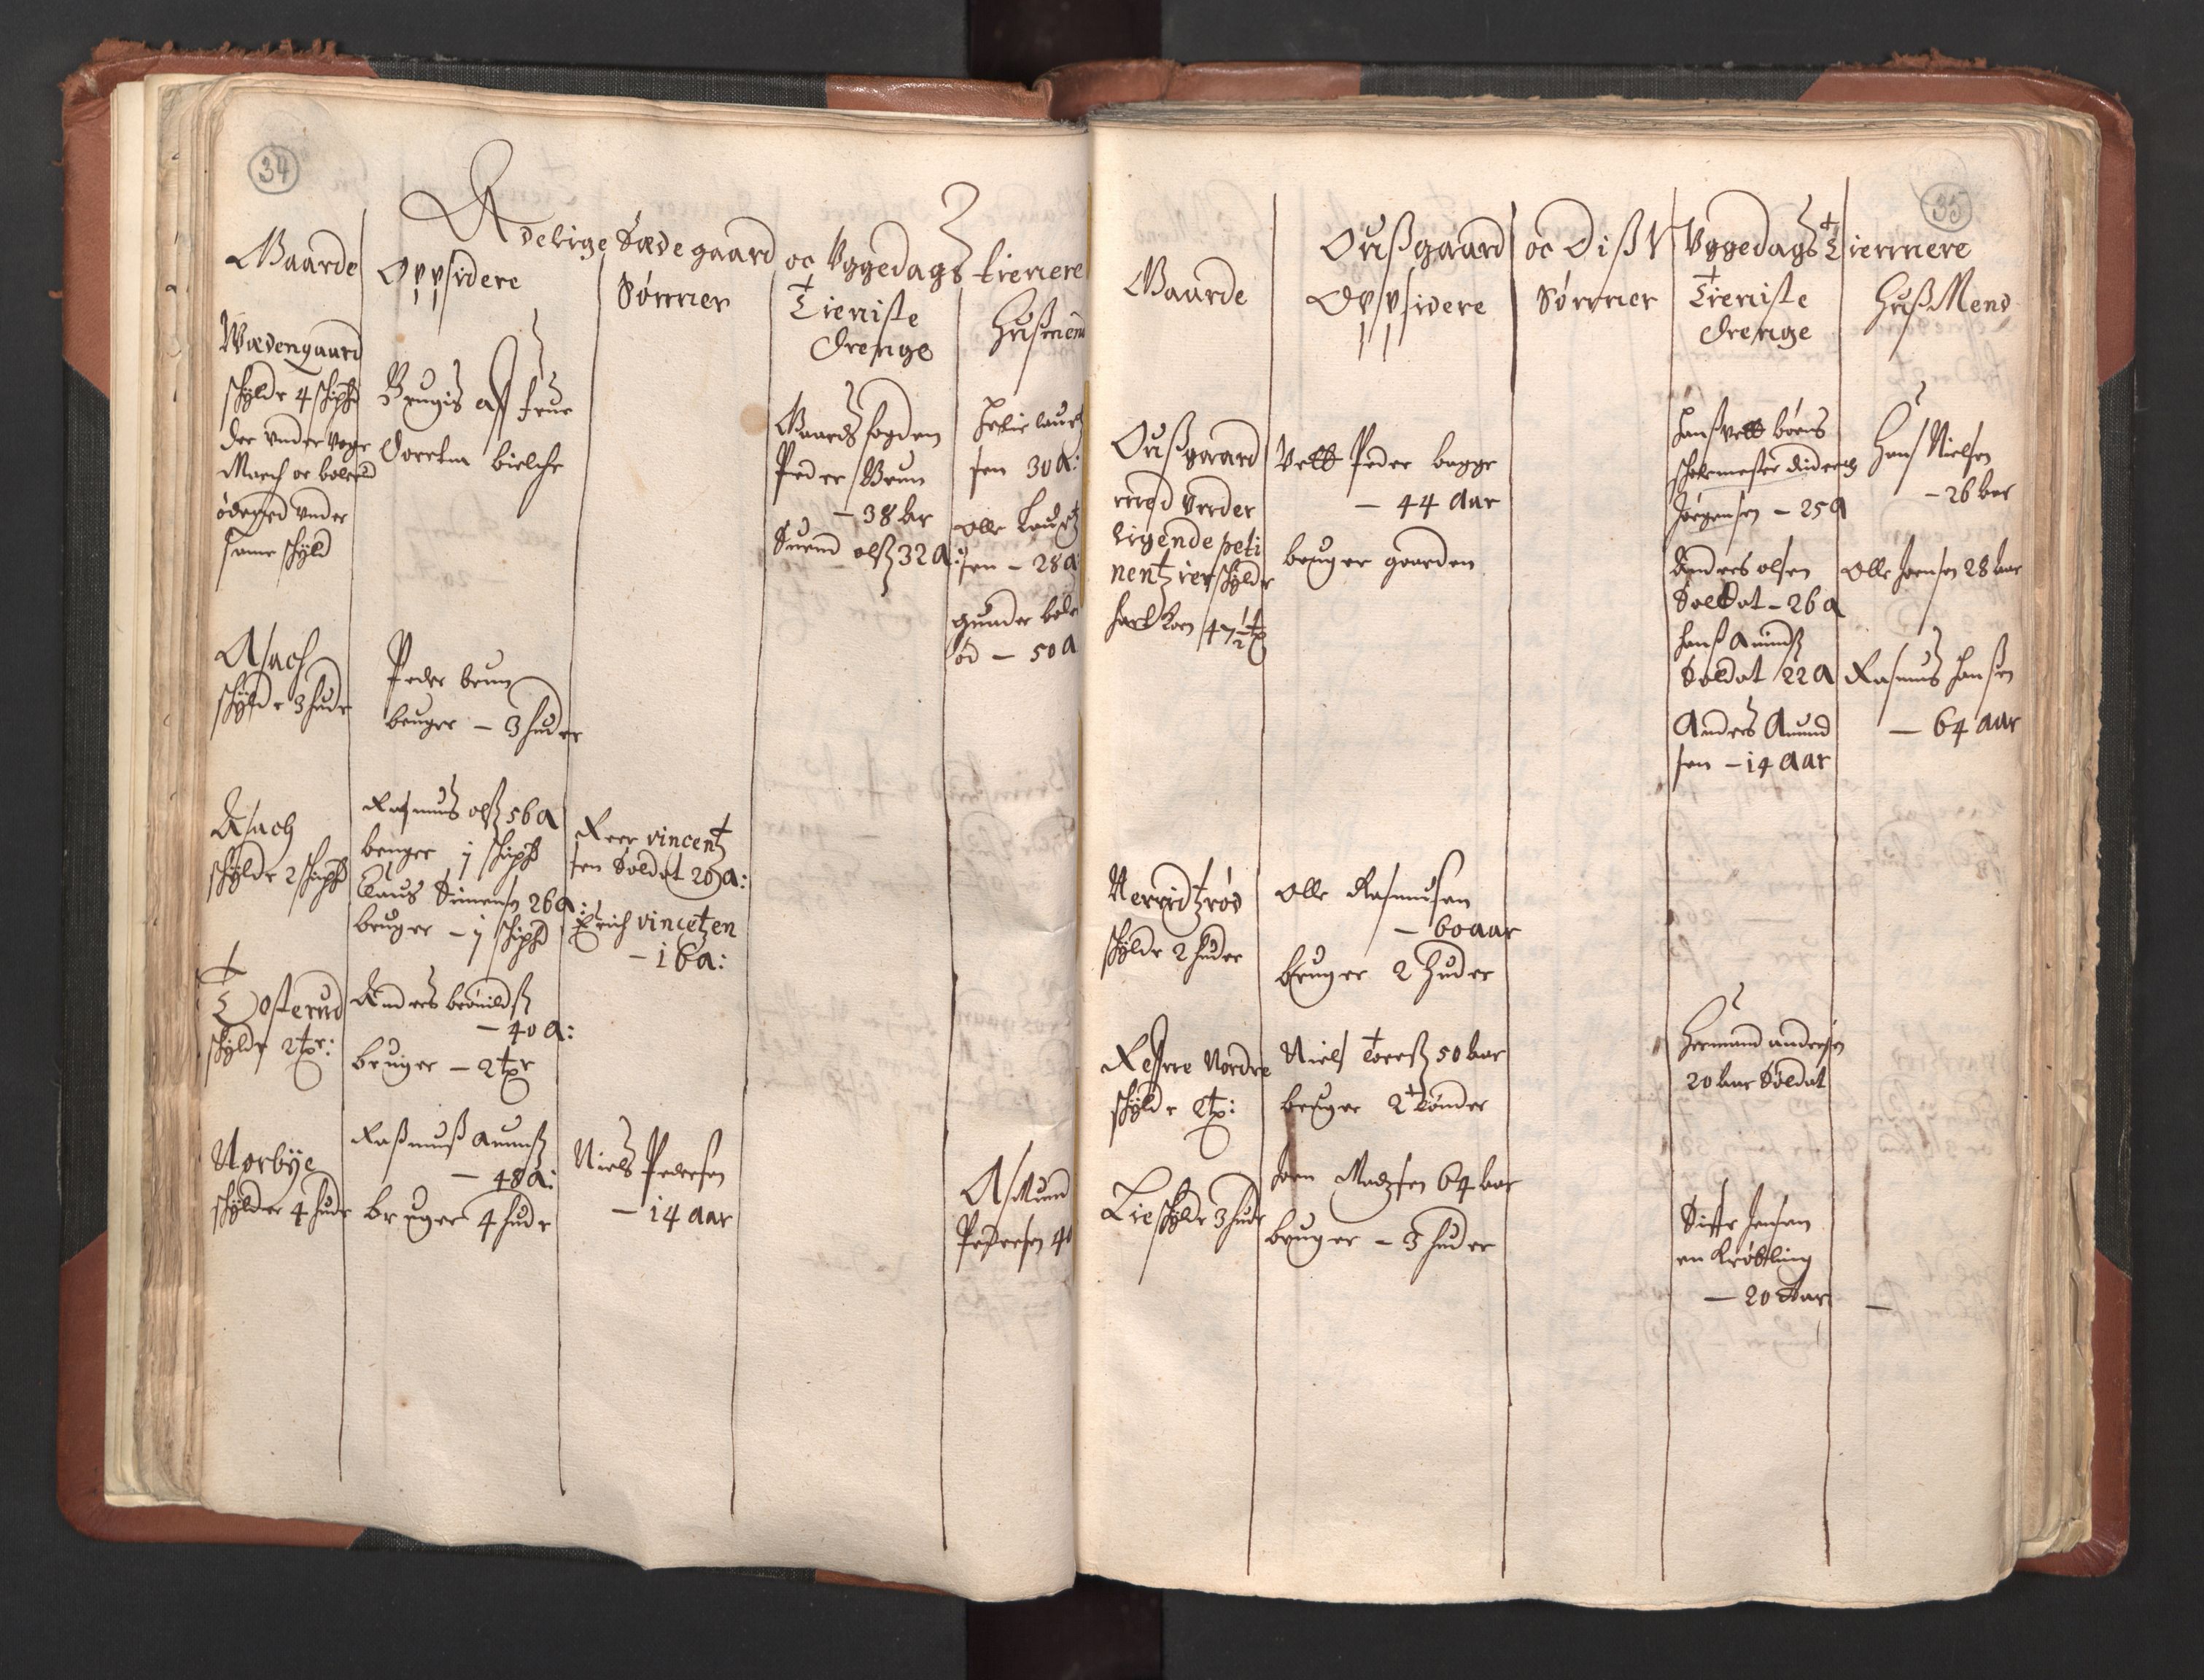 34
Adelige Sædegaard oc Vggedags tienere
Gaarde
Opsidere
Sønner
Tieniste
drenge
Hussmend
Wædengaard
schylde 4 schipd
der under
March oc
ødegrd vnder
samme schyld
Brugis aff frue
Doretha bielche
Gaardsfogden
Peder Brun
- 38 Aar
Suend olss 32 A:
Helie laurit
sen 30 A:
Olle Laurit
sen - 28 A
gunder
ød - 50 A
Asach
schylde 3 hude
Peder brun
bruger - 3 huder
Asach
schylde 2 schipd
Rasmus olss 56 A
bruger j schipd
Claus Simensen 26 A:
bruger - j schipd
Reer vincent
sen Soldat 20 a:
Erich vincetzen
- 16 a:
Tosterud
schylde 2 tpr:
Anders brønildss
- 40 A:
bruger - 2 tpr
Norbye
schylder 4 hude
Rassmuss amunss
- 48 A:
bruger 4 hude
Niels Pedersen
- 14 aar
Asmund
Pedersen 40
35
Oussgaard oc Diss Vggedags Tiennere
Gaarde
Opsidere
Sønner
Tieniste
drenge
Huss Mend
Oussgaard
med vnder
ligende peti
nentzier schylde
hart korn 47½ tp
Velb Peder bagge
- 44 aar
bruger gaarden
Hans velb børns
scholemester Diderich
Jørgensen - 25 A
Anders olsen
Soldat - 26 a
hanss amundss
Soldat 22 A
Anders Amund
sen - 14 aar
Hans Nielsen
- 26 aar
Olle Joensen 28 aar
Rasmus hansen
- 64 aar
Nerridtzrød
schylde 2 huder
Olle Rasmusen
- 60 aar
bruger 2 huder
Resne Nordre
schylde 2 tp:
Niels Toress 50 aar
bruger 2 tønder
Hermand andersen
20 aar Soldat
Lie schylde 3 hude
Joen Madzsen 64 aar
bruger - 3 huder
Siffr Jensen
en Krøbling
- 20 aar -